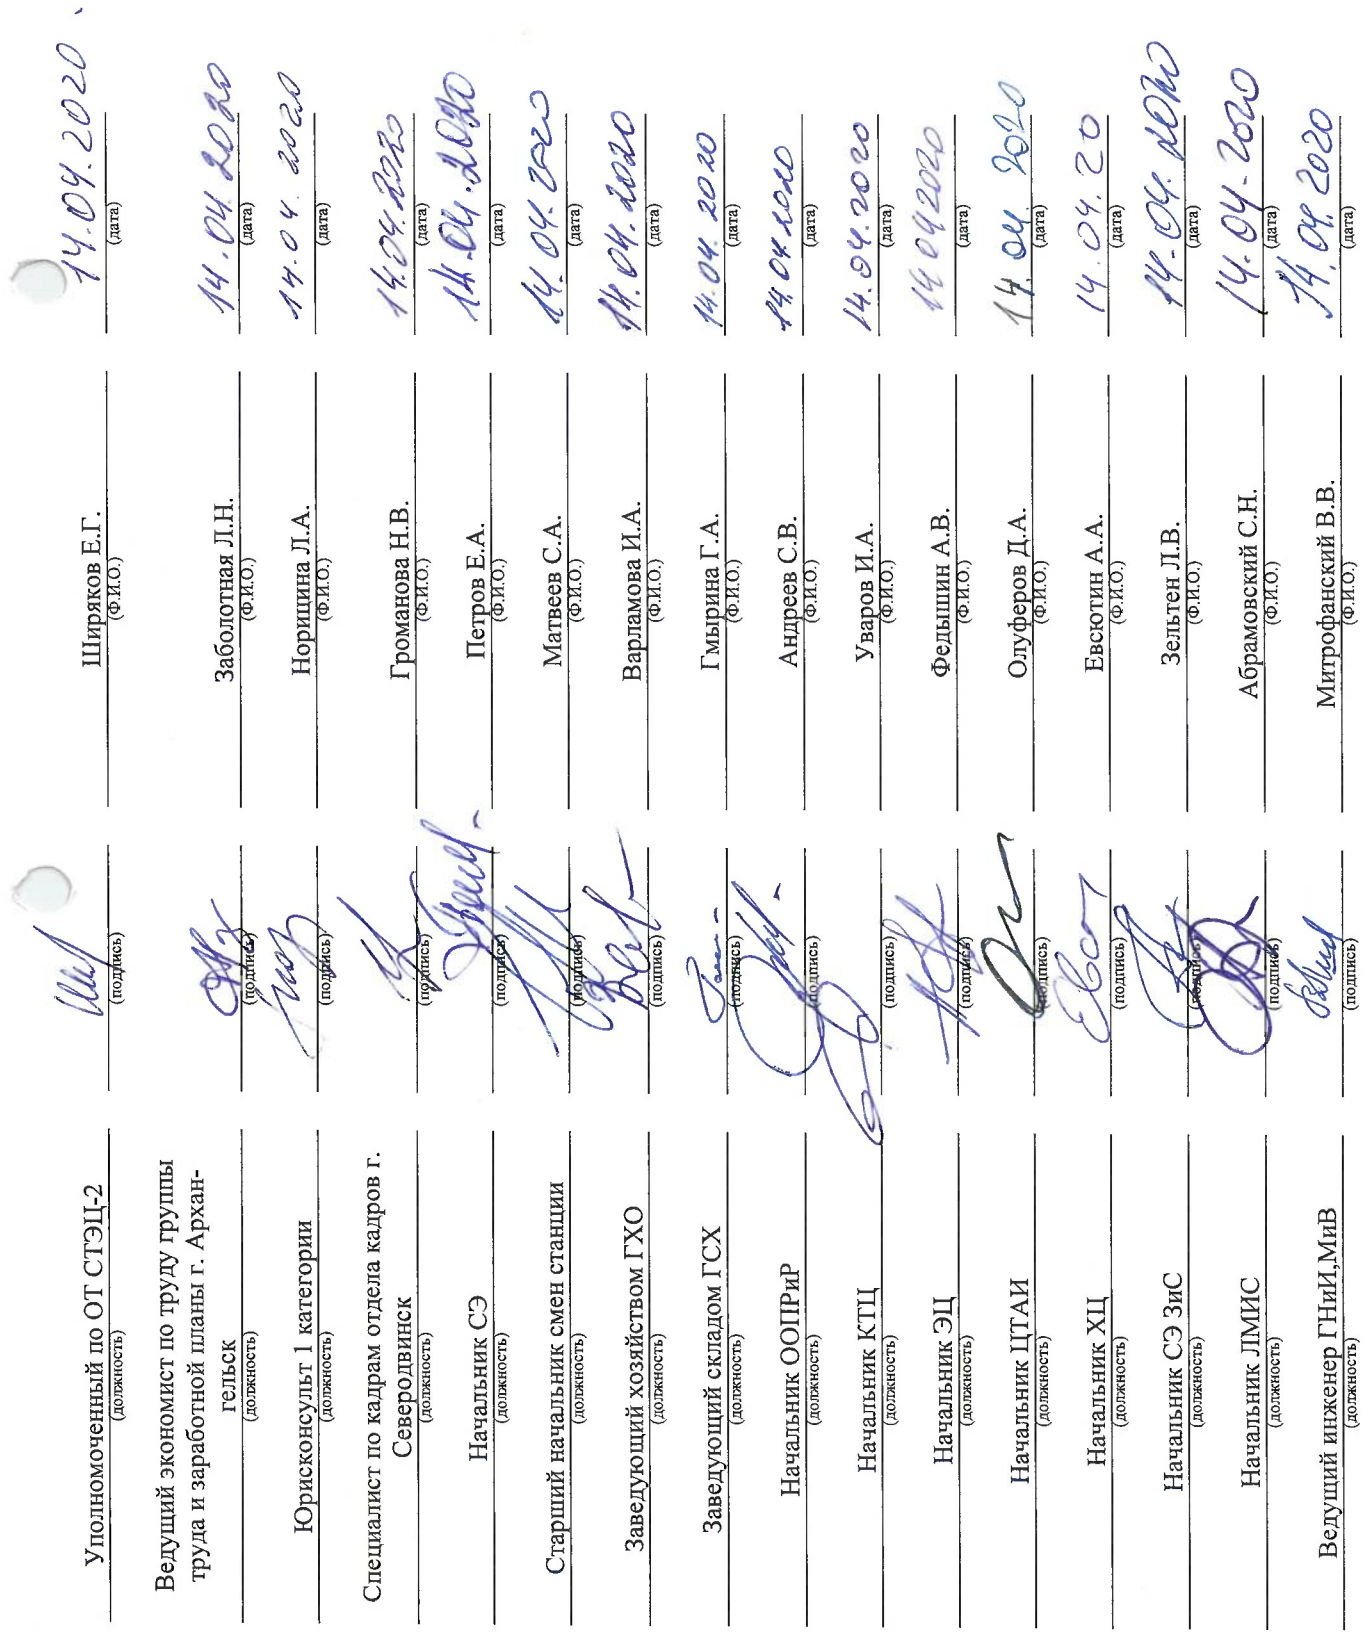 Уполномоченный по ОТ СТЭЦ-2 Ширяков Е.Г. 14.04.2020
(должность) (подпись) (Ф.И.О.) (дата)
Ведущий экономист по труду группы
труда и заработной планы г. Архан-
гельск Заболотная Л.Н. 14.04.2020
(должность) (подпись) (Ф.И.О.) (дата)
Юрисконсульт 1 категории Норицина Л.А. 14.04.2020
(должность) (подпись) (Ф.И.О.) (дата)
Специалист по кадрам отдела кадров г.
Северодвинск Громанова Н.В. 14.04.2020
(должность) (подпись) (Ф.И.О.) (дата)
Начальник СЭ Петров Е.А. 14.04.2020
(должность) (подпись) (Ф.И.О.) (дата)
Старший начальник смен станции Матвеев С.А. 14.04.2020
(должность) (подпись) (Ф.И.О.) (дата)
Заведующий хозяйством ГХО Варламова И.А. 14.04.2020
(должность) (подпись) (Ф.И.О.) (дата)
Заведующий складом ГСХ Гмырина Г.А. 14.04.2020
(должность) (подпись) (Ф.И.О.) (дата)
Начальник ООПРиР Андреев С.В. 14.04.2020
(должность) (подпись) (Ф.И.О.) (дата)
Начальник КТЦ Уваров И.А. 14.04.2020
(должность) (подпись) (Ф.И.О.) (дата)
Начальник ЭЦ Федышин А.В. 14 04 2020
(должность) (подпись) (Ф.И.О.) (дата)
Начальник ЦТАИ Олуферов Д.А. 14.04.2020
(должность) (подпись) (Ф.И.О.) (дата)
Начальник ХЦ Евсютин А.А. 14.04.20
(должность) (подпись) (Ф.И.О.) (дата)
Начальник СЭ ЗиС Зельтен Л.В. 14.04.2020
(должность) (подпись) (Ф.И.О.) (дата)
Начальник ЛМИС Абрамовский С.Н. 14.04.2020
(должность) (подпись) (Ф.И.О.) (дата)
Ведущий инженер ГНиИ,МиВ Митрофанский В.В. 14.04.2020
(должность) (подпись) (Ф.И.О.) (дата)